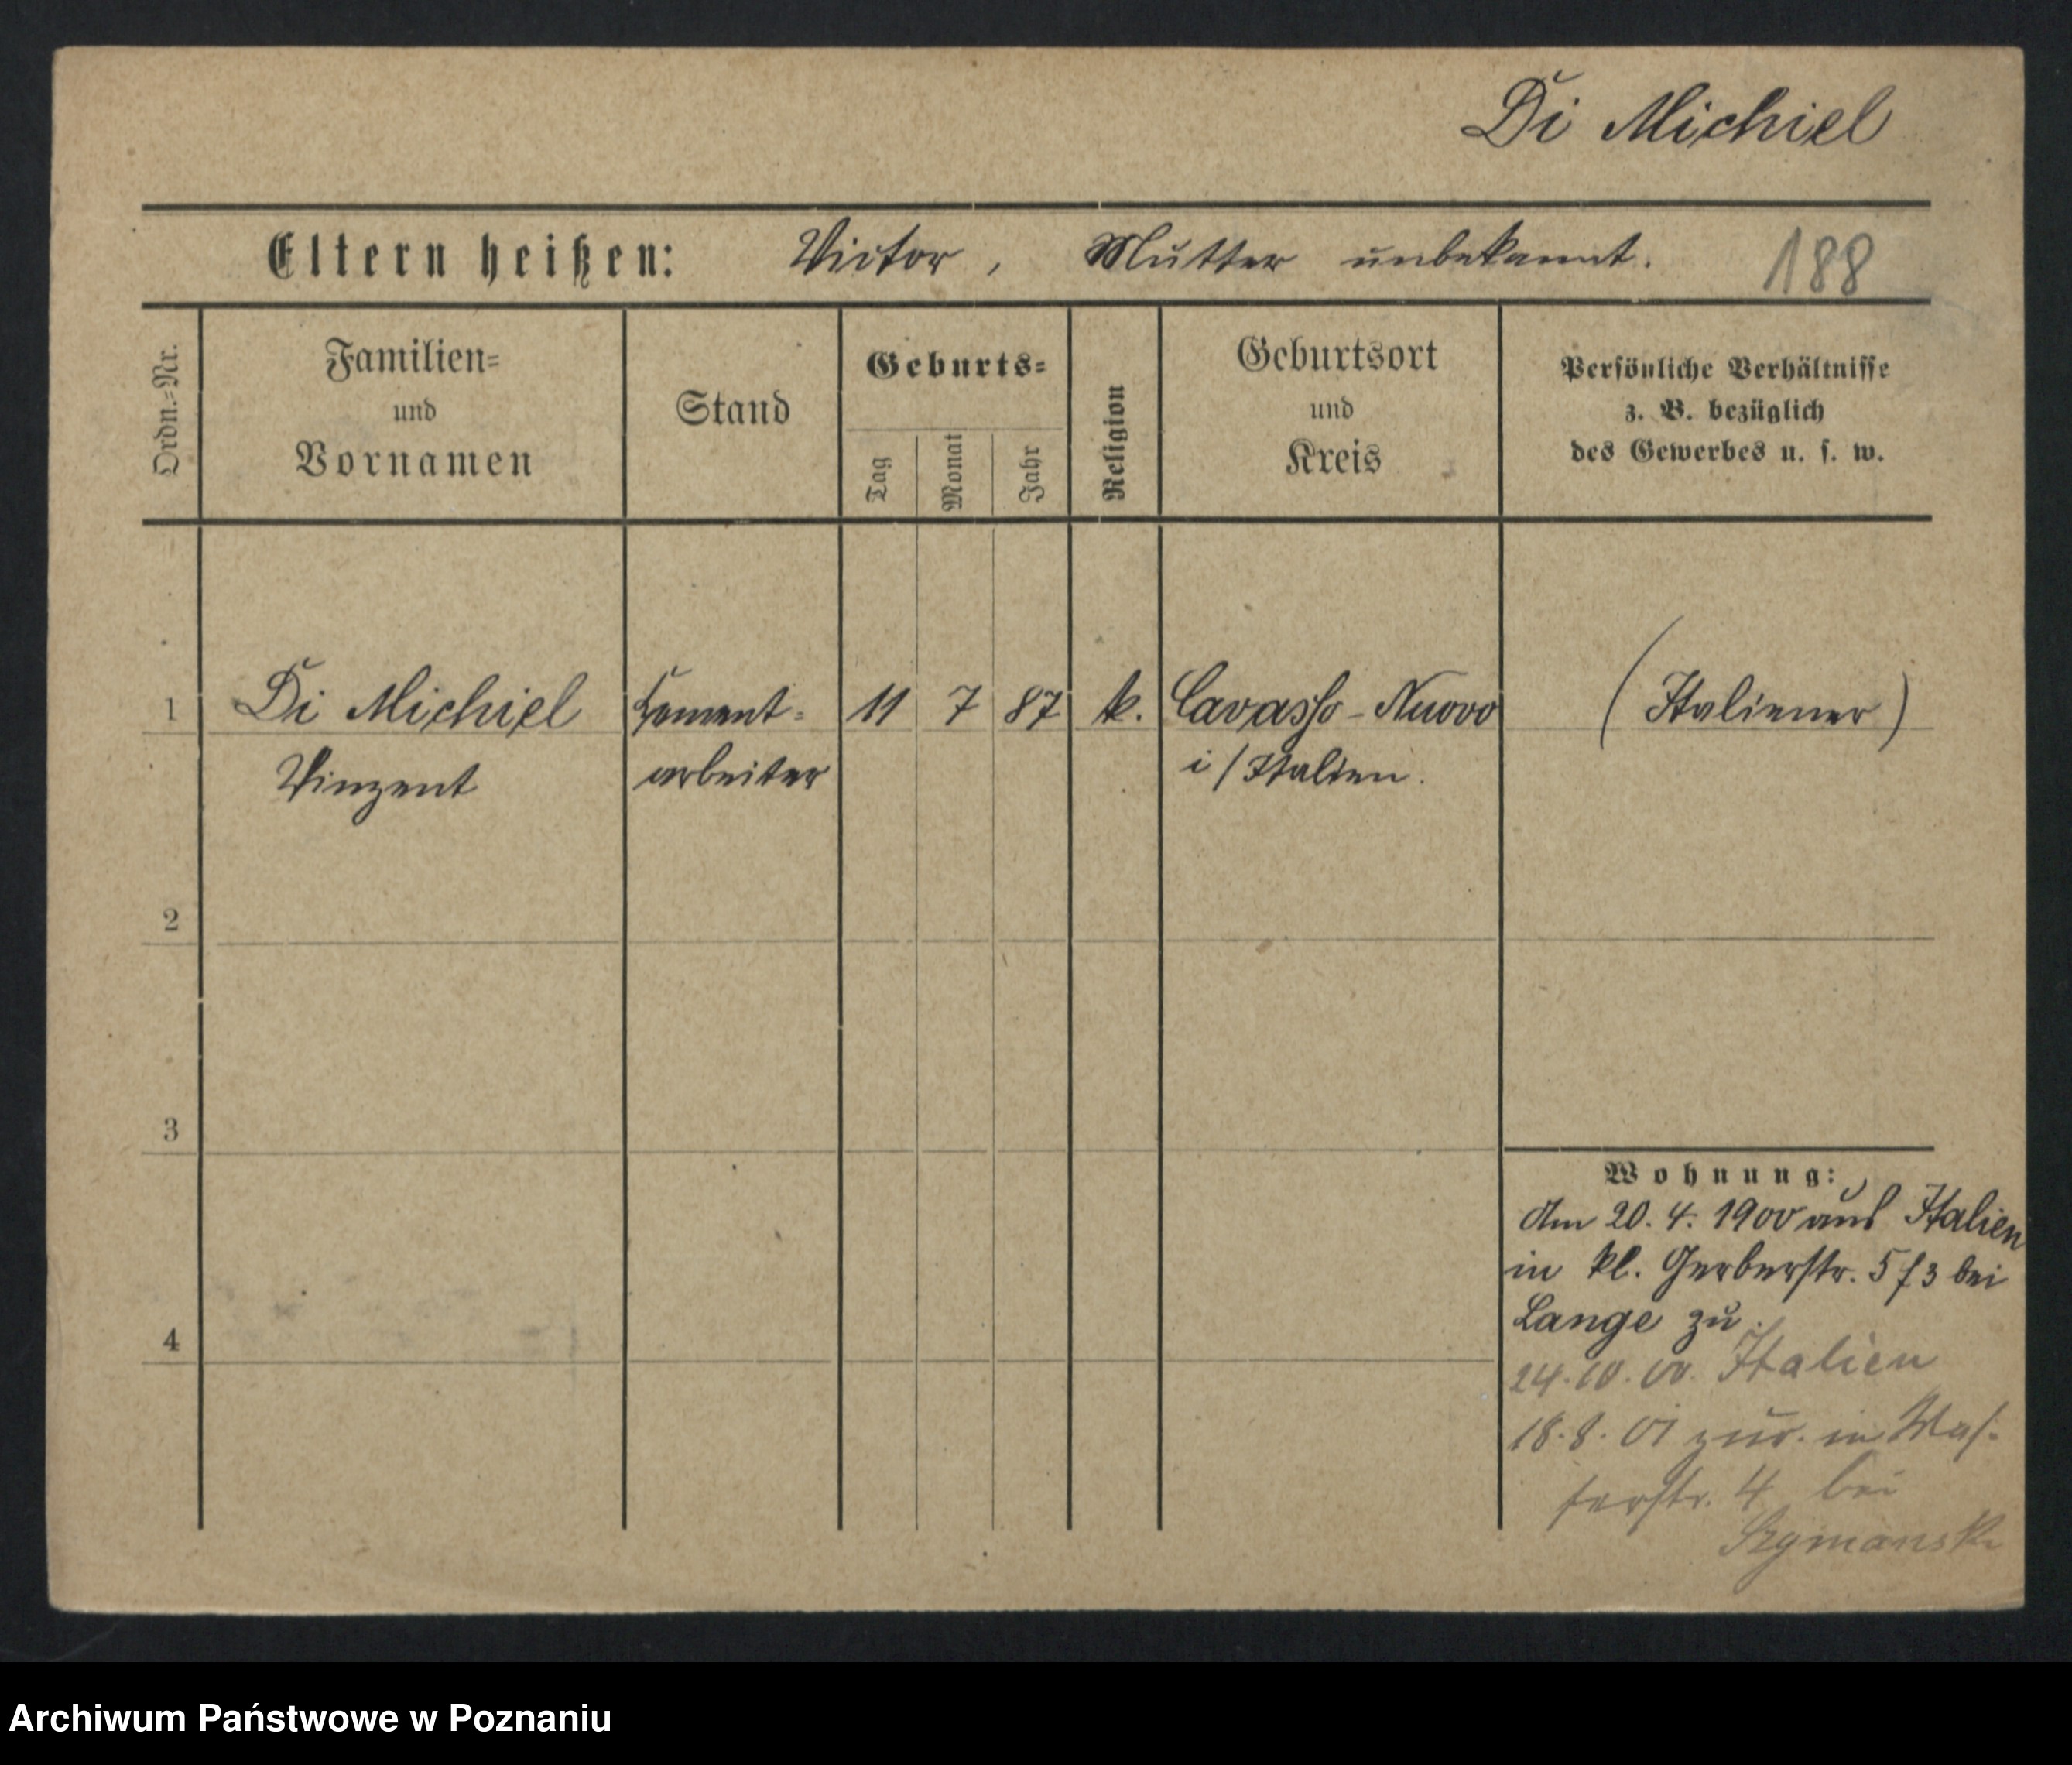 Di Michiel
Eltern heißen: Victor, Mutter unbekannt. 188
Ordn.=Nr.
Familien=
und
Vornamen
Stand
Geburts=
Tag
Monat
Jahr
Religion
Geburtsort
und
Kreis
Persönliche Verhältnisse
z. B. bezüglich
des Gewerbes u. s. w.
1 Di Michiel Zement= 11 7 87 k. Cavasso-Nuovo (Italiener)
Vinzent arbeiter i/Italien.
2
3
4
Wohnung:
Am 20. 4. 1900 aus Italien
in kl. Gerberstr. 5 f 3 bei
Lange zu.
24.10.00. Italien
18.8.01 zur. in Was-
serstr. 4 bei
Szymanski
Archiwum Państwowe w Poznaniu